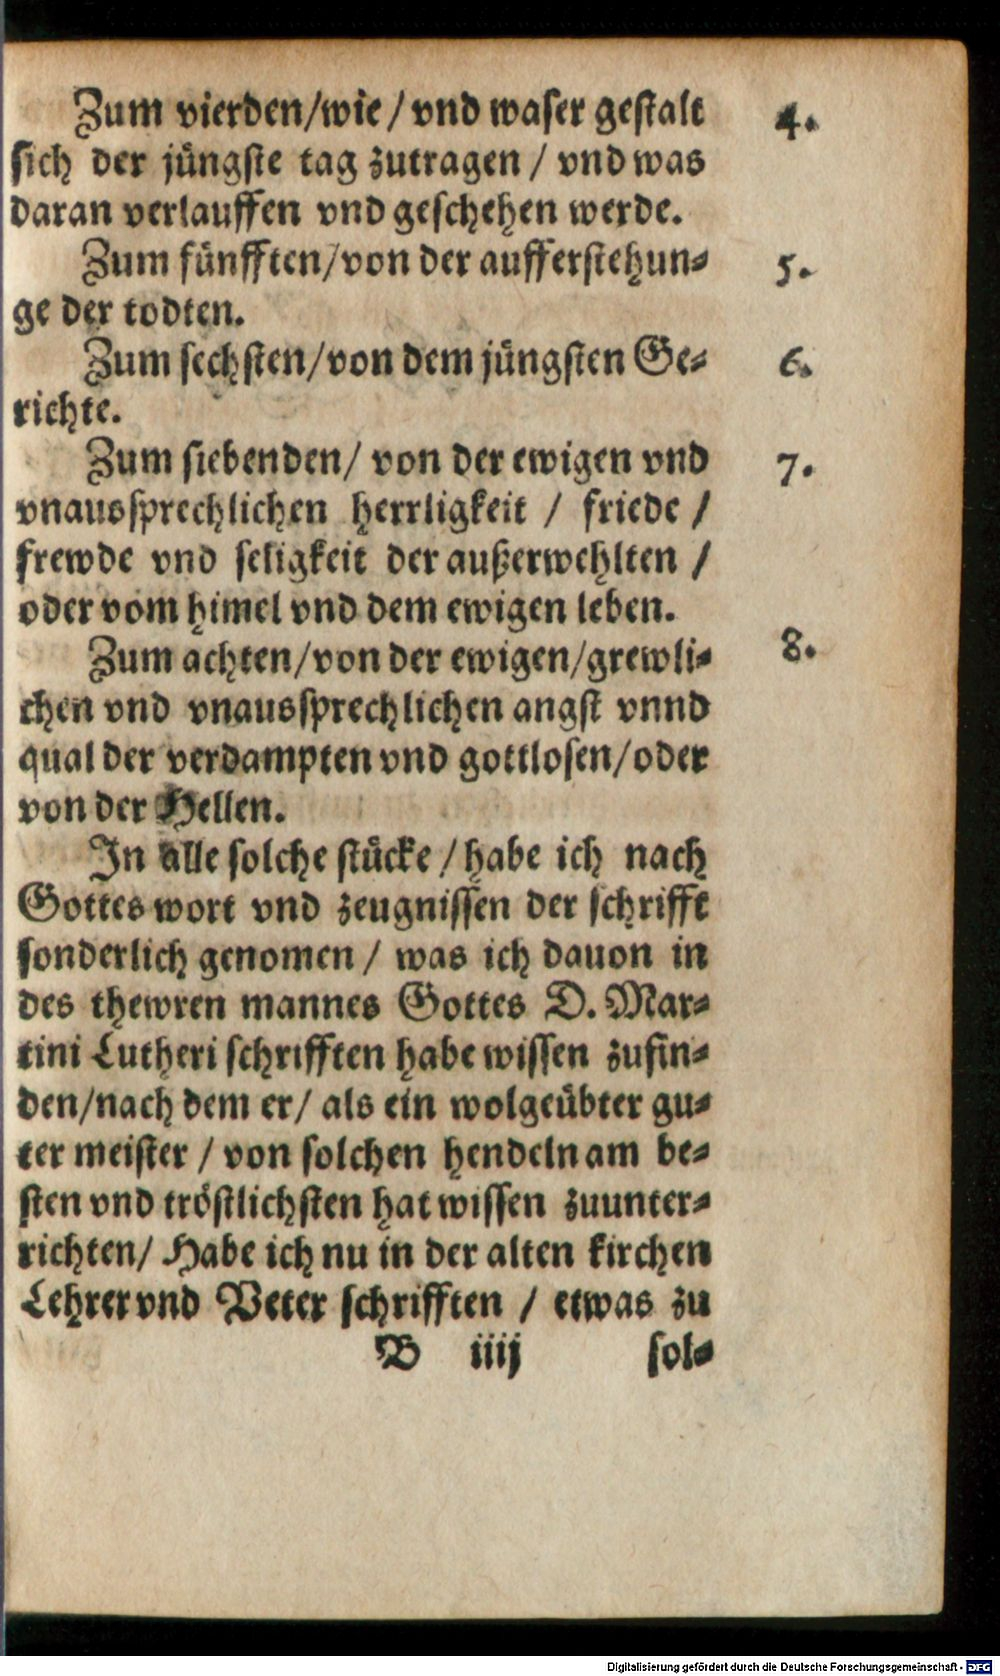 Zum vierden/wie / vnd waser gestalt 4.
sich der jüngste tag zutragen / vnd was
daran verlauffen vnd geschehen werde.
Zum fünfften/von der aufferstehun- 5.
ge der todten.
Zum sechsten/von dem jüngsten Ge- 6.
richte.
Zum siebenden/ von der ewigen vnd 7.
vnaussprechlichen herrligkeit / friede /
frewde vnd seligkeit der außerwehlten /
oder vom himel vnd dem ewigen leben.
Zum achten/von der ewigen/grewli- 8.
chen vnd vnaussprechlichen angst vnnd
qual der verdampten vnd gottlosen/oder
von der Hellen.
In alle solche stücke / habe ich nach
Gottes wort vnd zeugnissen der schrifft
sonderlich genomen / was ich dauon in
des thewren mannes Gottes D. Mar-
tini Lutheri schrifften habe wissen zufin-
den/nach dem er/ als ein wolgeübter gu-
ter meister / von solchen hendeln am be-
sten vnd tröstlichsten hat wissen zuunter-
richten/ Habe ich nu in der alten kirchen
Lehrer vnd Veter schrifften / etwas zu
B iiij sol-
Digitalisierung gefördert durch die Deutsche Forschungsgemeinschaft - DFG